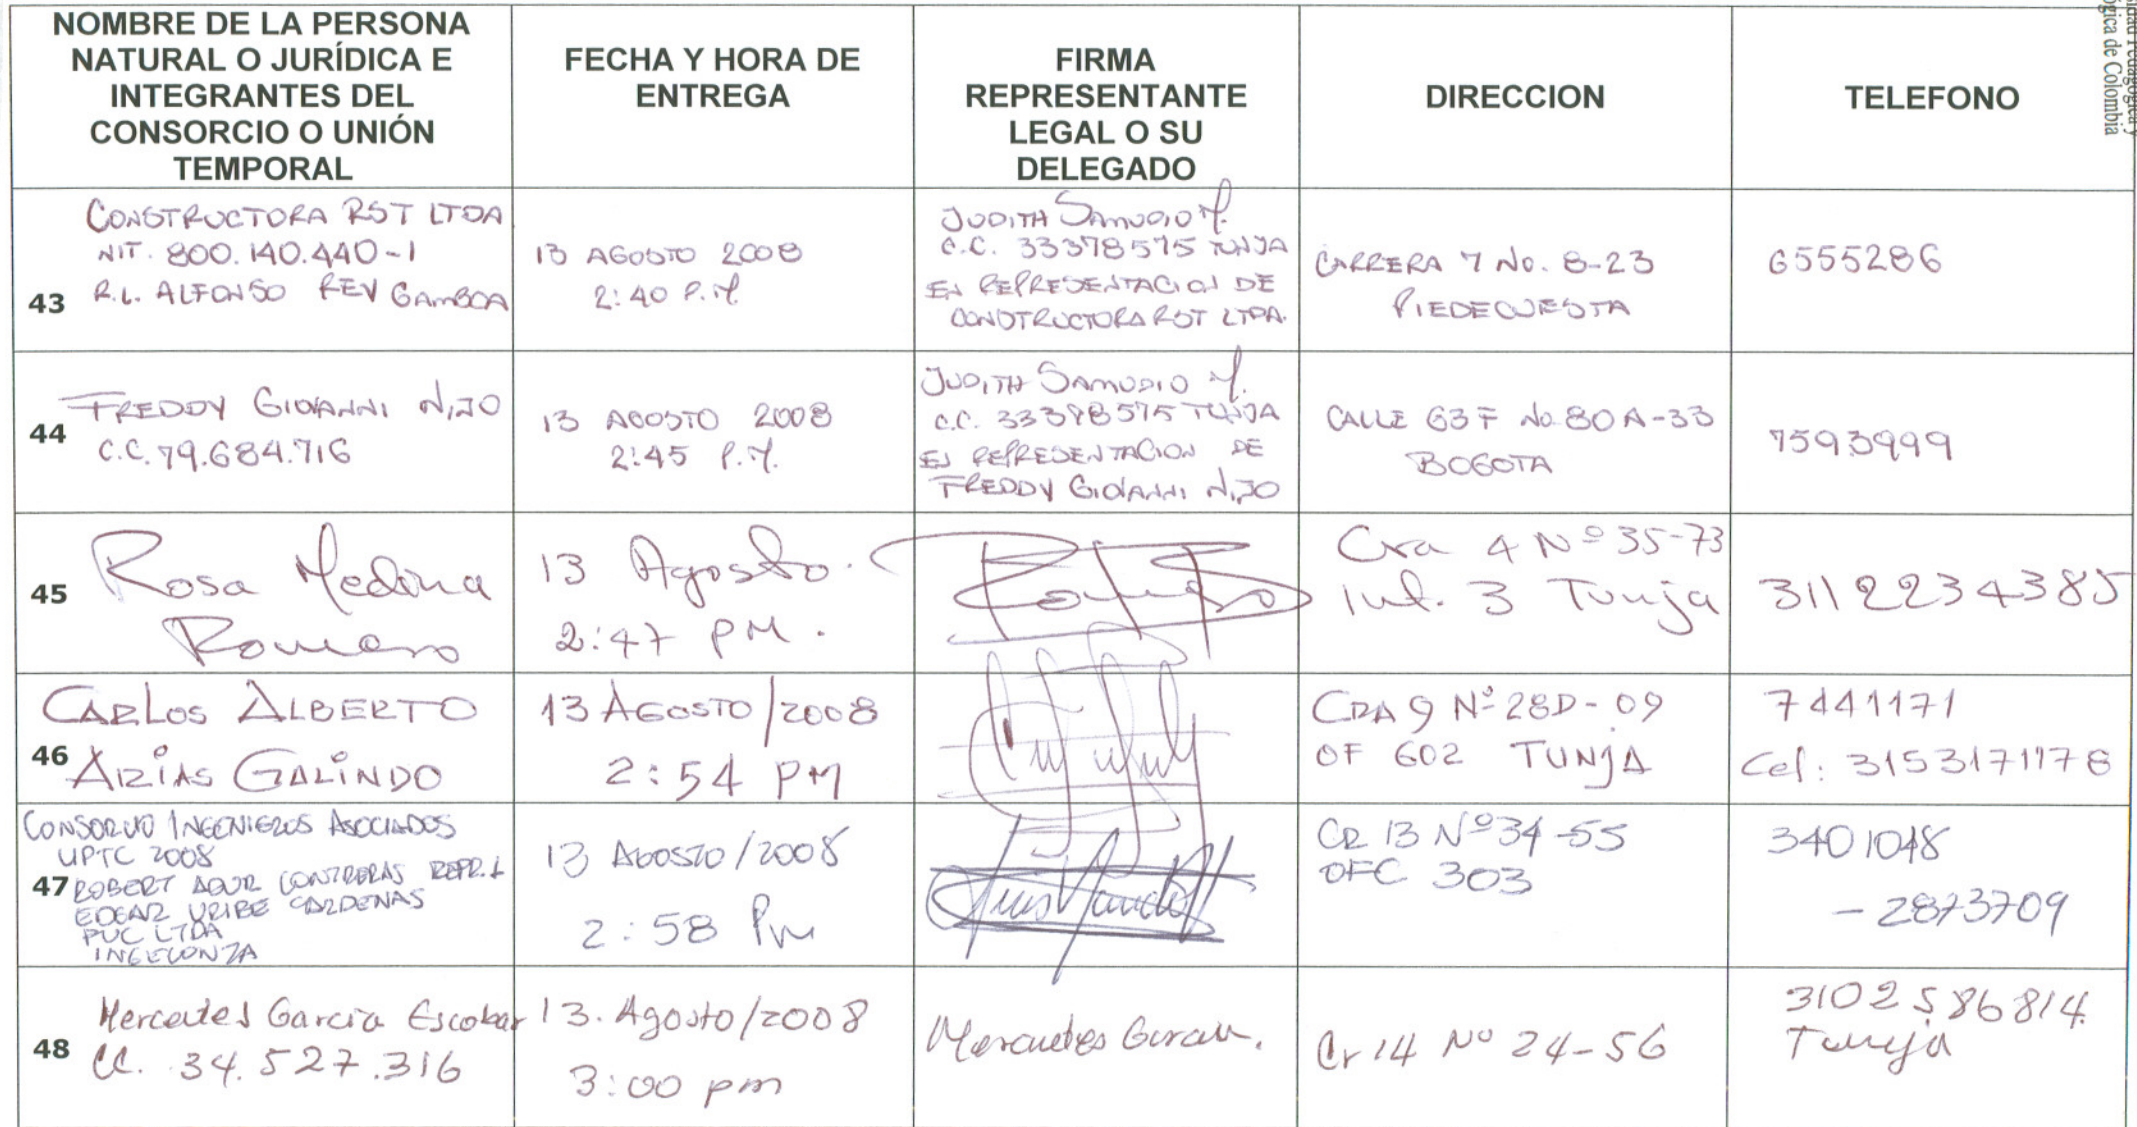 NOMBRE DE LA PERSONA
NATURAL O JURÍDICA E
INTEGRANTES DEL
CONSORCIO O UNIÓN
TEMPORAL
FECHA Y HORA DE
ENTREGA
FIRMA
REPRESENTANTE
LEGAL O SU
DELEGADO
DIRECCION
TELEFONO
ógica de Colombia
43
CONSTRUCTORA RST LTDA
NIT. 800.140.440-1
R.L. ALFONSO REY GAMBOA
13 AGOSTO 2008
2:40 P.M.
JUDITH SAMUDIO M.
C.C. 33378575 TUNJA
EN REPRESENTACION DE
CONSTRUCTORA RST LTDA.
CARRERA 7 No. 8-23
PIEDECUESTA
6555286
44
FREDDY GIOVANNI NIÑO
C.C. 79.684.716
13 AGOSTO 2008
2:45 P.M.
JUDITH SAMUDIO M.
C.C. 33378575 TUNJA
EN REPRESENTACION DE
FREDDY GIOVANNI NIÑO
CALLE 63F No. 80A-33
BOGOTA
7593999
45
Rosa Medina
Romero
13 Agosto.
2:47 PM.
Cra 4 Nº 35-73
Int. 3 Tunja
3112234385
46
CARLOS ALBERTO
ARIAS GALINDO
13 AGOSTO/2008
2:54 PM
CRA 9 Nº 28D-09
OF 602 TUNJA
7441171
Cel: 3153171178
47
CONSORCIO INGENIEROS ASOCIADOS
UPTC 2008
ROBERT CONTRERAS REPR. L
EDGAR URIBE CARDENAS
PUC LTDA
13 AGOSTO/2008
2:58 Pm
CR 13 Nº 34-55
OFC 303
3401048
- 2873709
48
Mercedes García Escobar
CC. 34.527.316
13. Agosto/2008
3:00 pm
Mercedes Garcia.
Cr 14 Nº 24-56
3102586814
Tunja